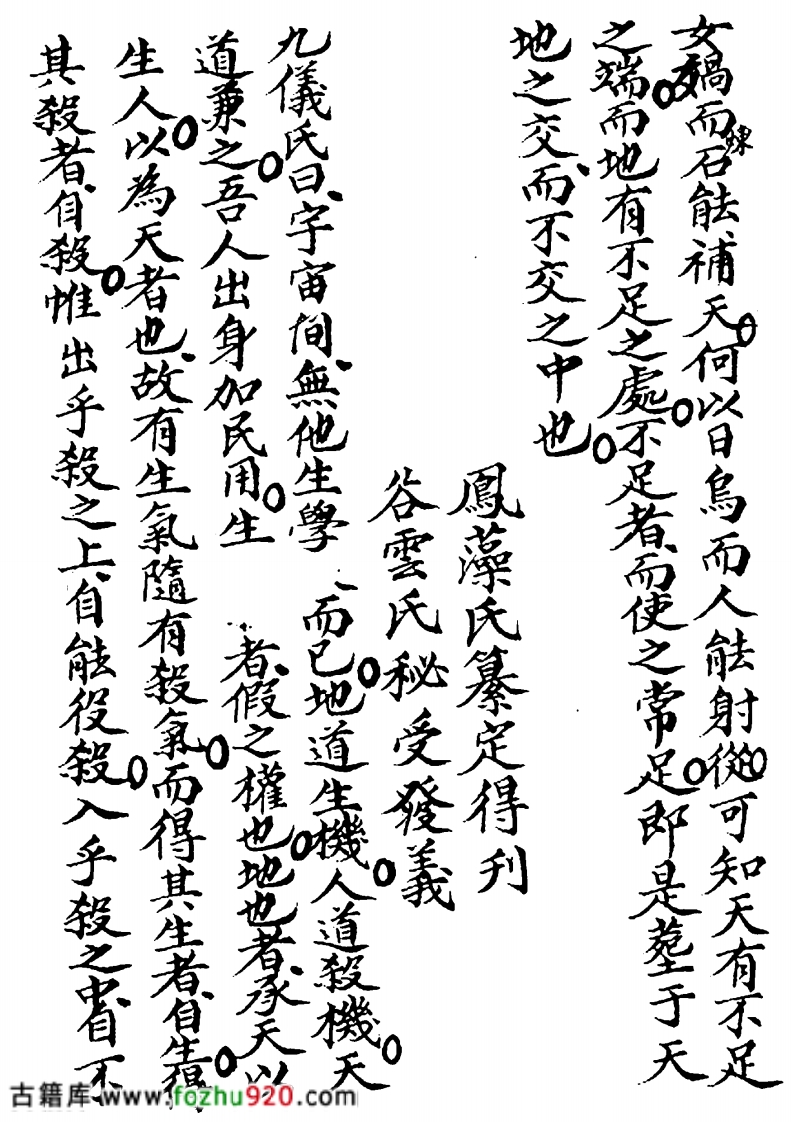 女媧而石煉能補天。何以日烏而人能射。從可知天有不足
之端。而地有不足之處。不足者、而使之常足。即是塟于天
地之交、而不交之中也。
鳳藻氏纂定得刋
谷雲氏秘受發義
九儀氏曰、宇宙間、無他生學、而已。地道生機。人道殺機。天
道兼之。吾人出身加民用。生者、假之權也。地也者、承天以
生人。以為天者也、故有生氣隨有殺氣。而得其生者、自生。得
其殺者、自殺。惟出乎殺之上、自能役殺。入乎殺之中、自不
古籍库 www.fozhu920.com